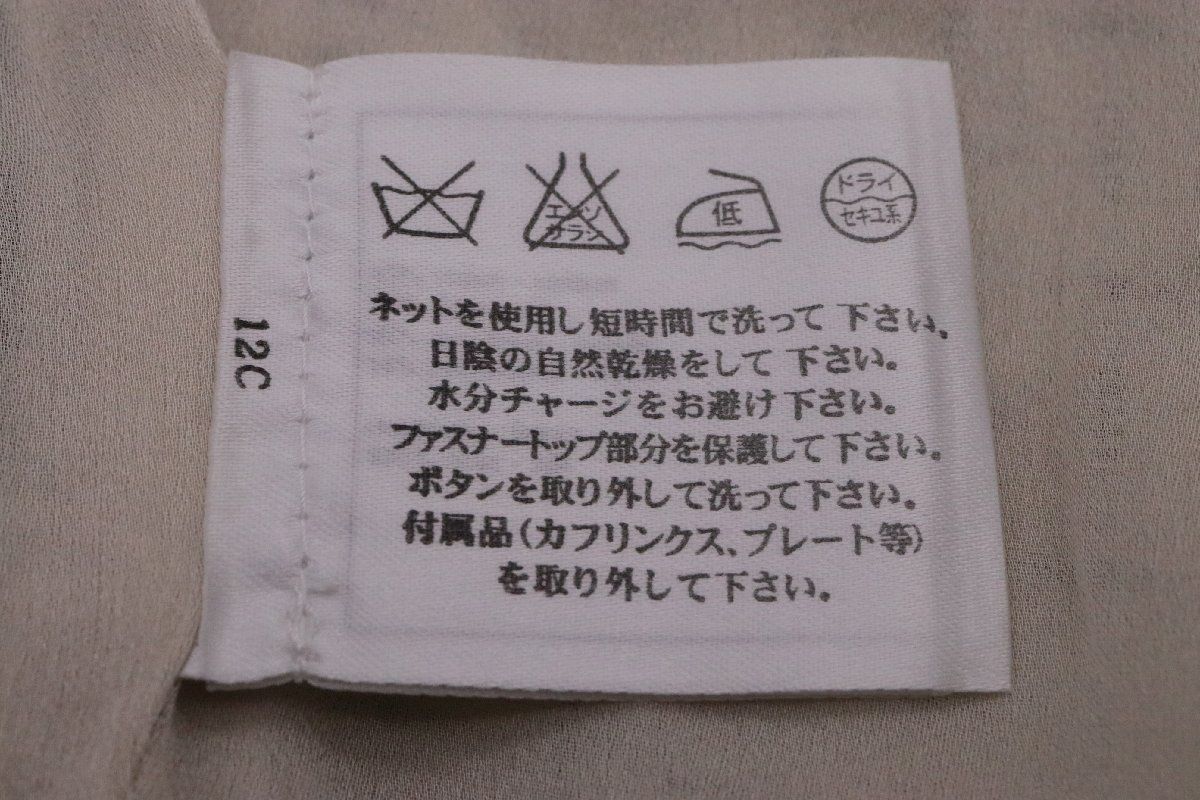 エンソ
サラシ
低
ドライ
セキユ系
ネットを使用し短時間で洗って下さい。
日陰の自然乾燥をして下さい。
水分チャージをお避け下さい。
ファスナートップ部分を保護して下さい。
ボタンを取り外して洗って下さい。
付属品(カフリンクス、プレート等)
を取り外して下さい。
12C